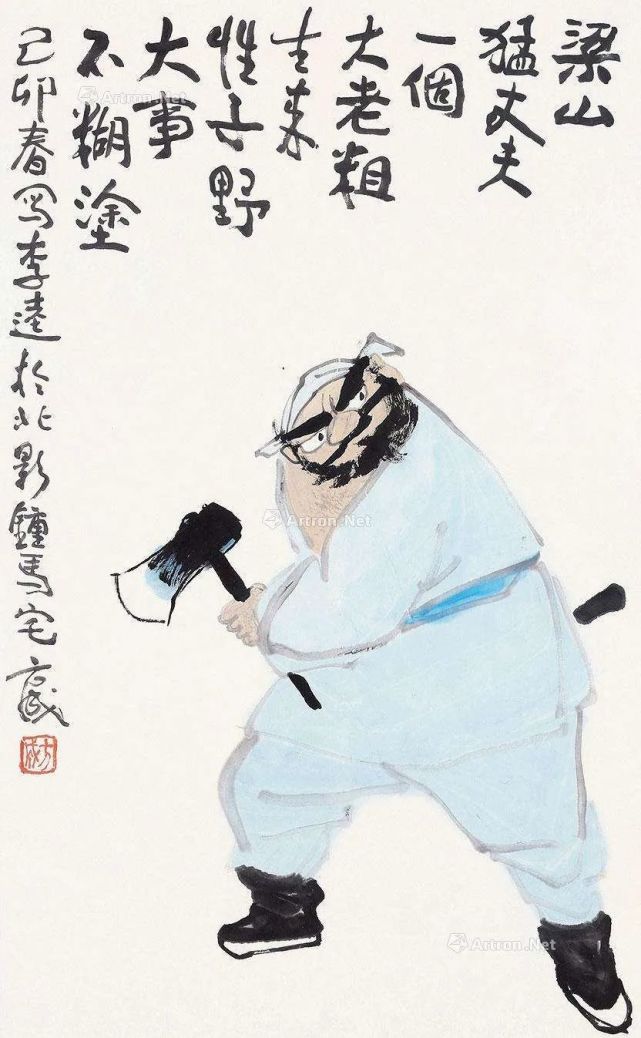 梁山
猛丈夫
一個
大老粗
生来
性子野
大事
不糊塗
己卯春写李逵於北影鐘馬宅 方成
方成
Artron.Net
Artron.Net
Artron.Net